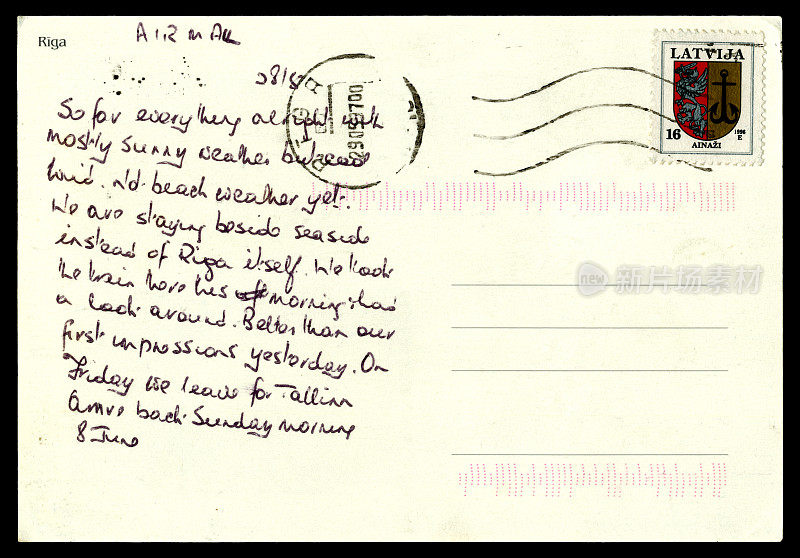 Riga
AIR MAIL
28/5
So far everything alright with
mostly sunny weather but
wind. Not beach weather yet.
We are staying beside seaside
instead of Riga itself. We took
the train here this morning & had
a look around. Better than our
first impressions yesterday. On
Friday we leave for Tallinn
Arrive back Sunday morning
8 June
RIGA
29059700
LATVIJA
16
1996
E
AINAŽI
new
iStock